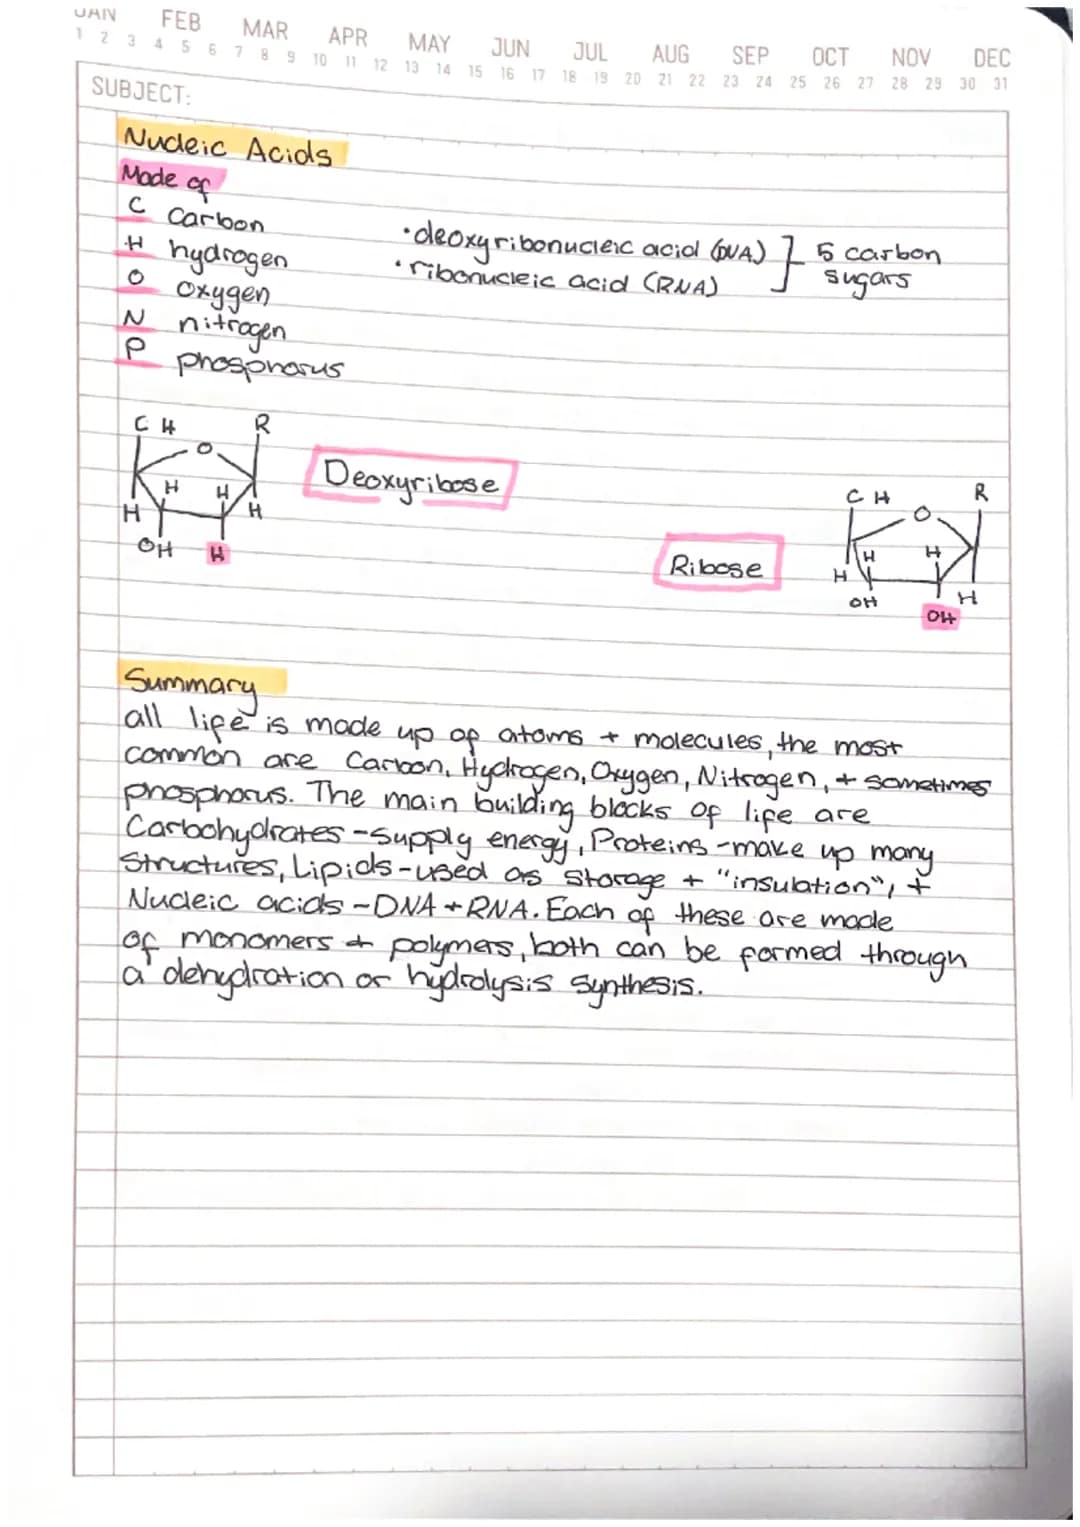 JAN FEB MAR APR MAY JUN JUL AUG SEP OCT NOV DEC
1 2 3 4 5 6 7 8 9 10 11 12 13 14 15 16 17 18 19 20 21 22 23 24 25 26 27 28 29 30 31
SUBJECT:
Nucleic Acids
Made of
C carbon
H hydrogen
O oxygen
N nitrogen
P phosphorus
•deoxyribonucleic acid (DNA)
•ribonucleic acid (RNA)
5 carbon
sugars
C H R
O
H H
H H
OH H
Deoxyribose
C H R
O
H H
H H
OH OH
Ribose
Summary
all life is made up of atoms + molecules, the most
common are Carbon, Hydrogen, Oxygen, Nitrogen, + sometimes
phosphorus. The main building blocks of life are
Carbohydrates - supply energy, Proteins - make up many
structures, Lipids - used as storage + "insulation", +
Nucleic acids - DNA + RNA. Each of these are made
of monomers + polymers, both can be formed through
a dehydration or hydrolysis synthesis.